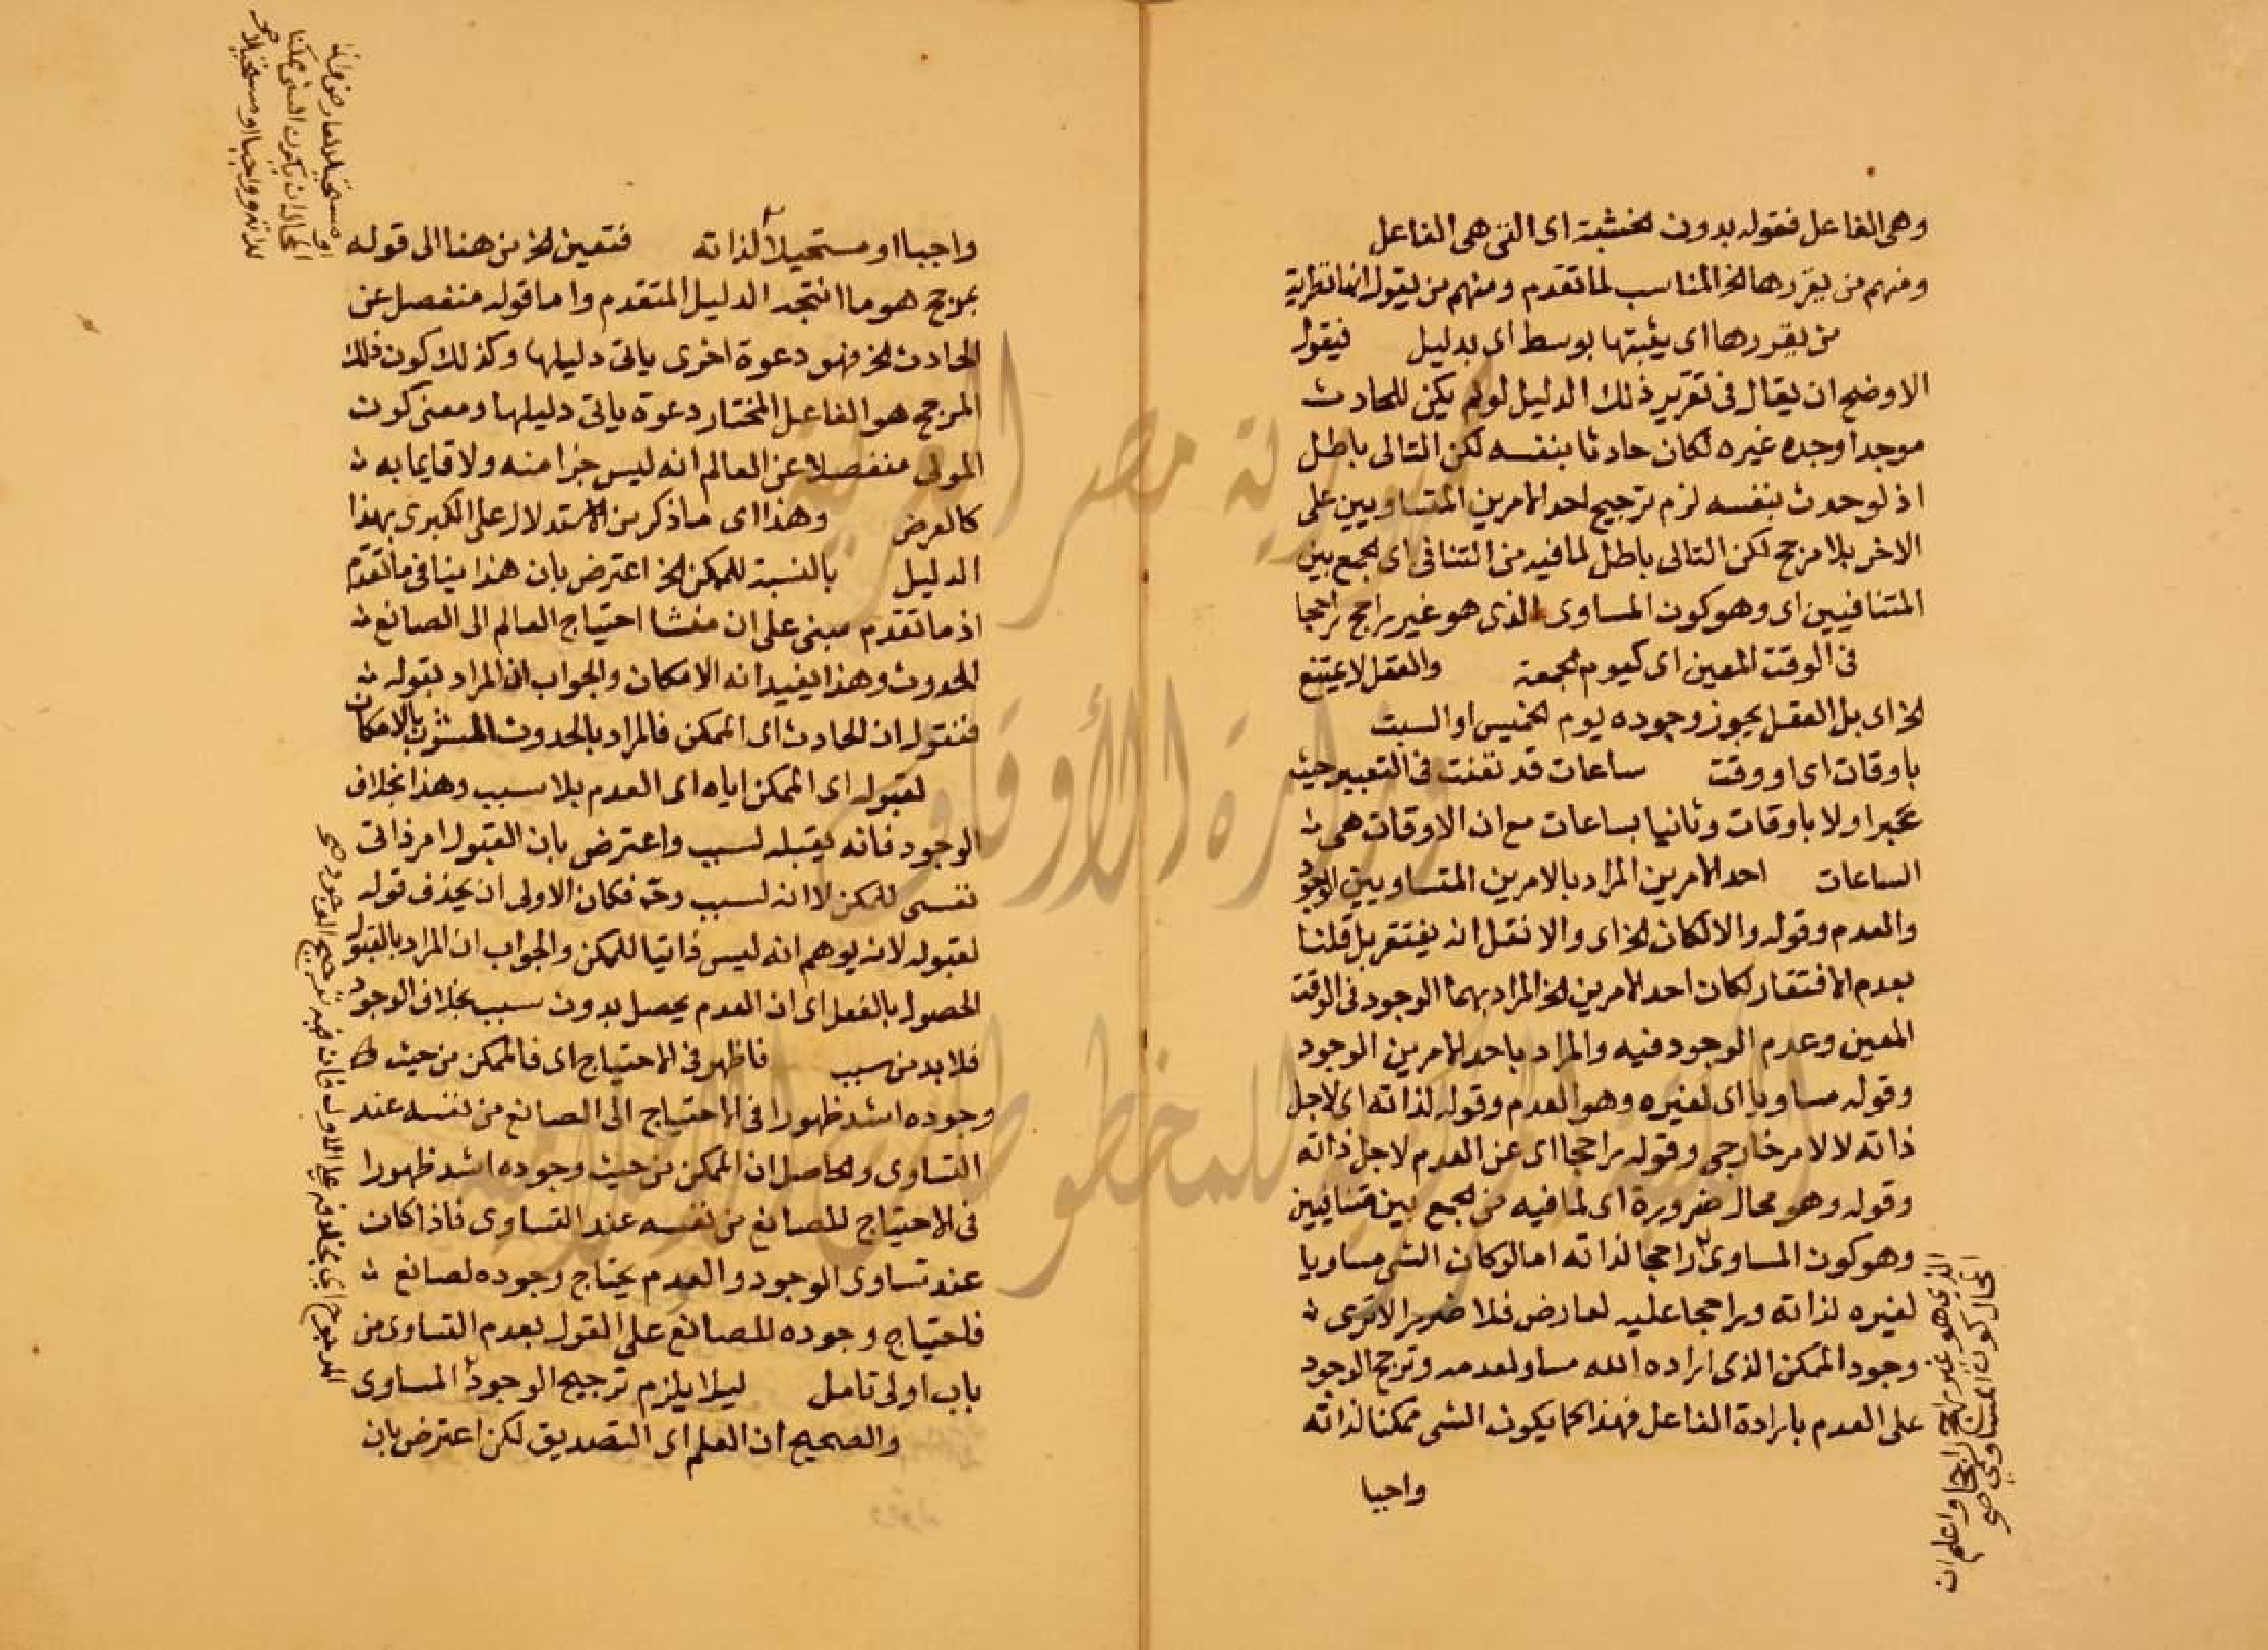 وهى الفاعل فقوله بدون الخشبة اى التى هى الفاعل
ومنهم من يقررها الخ المناسب لما تقدم ومنهم من يقول انها نظرية
من يقررها اى يثبتها بوسط اى بدليل فيقول
الاوضح ان يقال فى تقرير ذلك الدليل لو لم يكن للحادث
موجدا وجده غيره لكان حادثا بنفسه لكن التالى باطل
اذ لو حدث بنفسه لزم ترجيح احد الامرين المتساويين على
الاخر بلا مرجح لكن التالى باطل لما فيه من التنافى اى الجمع بين
المتنافيين اى وهو كون المساوى الذى هو غير راجح راجحا
فى الوقت المعين اى كيوم الجمعة والعقل لا يمتنع
الخ اى بل العقل يجوز وجوده يوم الخميس او السبت
باوقات اى او وقت ساعات قد تفنن فى التعبير حيث
عبر اولا باوقات وثانيا بساعات مع ان الاوقات هى
الساعات احد الامرين المراد بالامرين المتساويين الوجود
والعدم وقوله والا لكان الخ اى والا نقل انه يفتقر بل قلنا
بعدم الافتقار لكان احد الامرين الخ المراد بهما الوجود فى الوقت
المعين وعدم الوجود فيه والمراد باحد الامرين الوجود
وقوله مساويا اى لغيره وهو العدم وقوله لذاته اى لاجل
ذاته لا لامر خارجى وقوله راجحا اى عن العدم لاجل ذاته
وقوله وهو محال ضرورة اى لما فيه من الجمع بين متنافيين
وهو كون المساوى راجحا لذاته اما لو كان الشى مساويا
لغيره لذاته وراجحا عليه لعارض فلا ضرر الا ترى
وجود الممكن الذى اراده الله مساو لعدمه وترجح الوجود
على العدم بارادة الفاعل فهذا كما يكون الشى ممكنا لذاته
واجبا
الذى هو غير راجح راجحا واعلم ان
المحال كون المساوي صح
واجبا او مستحيلا لذاته فتعين الخ من هنا الى قوله
بمرجح هو ما انتجه الدليل المتقدم واما قوله منفصل عن
الحادث الخ فهو دعوة اخرى ياتى دليلها وكذلك كون ذلك
المرجح هو الفاعل المختار دعوة ياتى دليلها ومعنى كون
المولى منفصلا عن العالم انه ليس جزا منه ولا قايما به
كالعرض وهذا اى ما ذكر من الاستدلال على الكبرى بهذا
الدليل بالنسبة للممكن الخ اعترض بان هذا ينافى ما تقدم
اذ ما تقدم مبنى على ان منشا احتياج العالم الى الصانع
الحدوث وهذا يفيد انه الامكان والجواب ان المراد بقوله
فنقول ان الحادث اى الممكن فالمراد بالحدوث المشوب بالامكان
لقبوله اى الممكن اياه اى العدم بلا سبب وهذا بخلاف
الوجود فانه يقبله لسبب واعترض بان القبول امر ذاتى
نفسى للممكن لا انه لسبب وح فكان الاولى ان يحذف قوله
لقبوله لانه يوهم انه ليس ذاتيا للممكن والجواب ان المراد بالقبول
الحصول بالفعل اى ان العدم يحصل بدون سبب بخلاف الوجود
فلا بد من سبب فاظهر فى الاحتياج اى فالممكن من حيث
وجوده اشد ظهورا فى الاحتياج الى الصانع من نفسه عند
التساوى والحاصل ان الممكن من حيث وجوده اشد ظهورا
فى الاحتياج للصانع من نفسه عند التساوى فاذا كان
عند تساوى الوجود والعدم يحتاج وجوده لصانع
فاحتياج وجوده للصانع على القول بعدم التساوى من
باب اولى تامل ليلا يلزم ترجيح الوجود المساوى
والصحيح ان العلم اى التصديق لكن اعترض بان
او مستحيلا لعارض وانما
المحال ان يكون الشى ممكنا
لذاته وواجبا او مستحيلا صح
المرجوح اي بخلافه على الاول فان فيه ترجيح الوجود صح
جمهورية مصر العربية
وزارة الأوقاف
المكتبة المركزية للمخطوطات الإسلامية